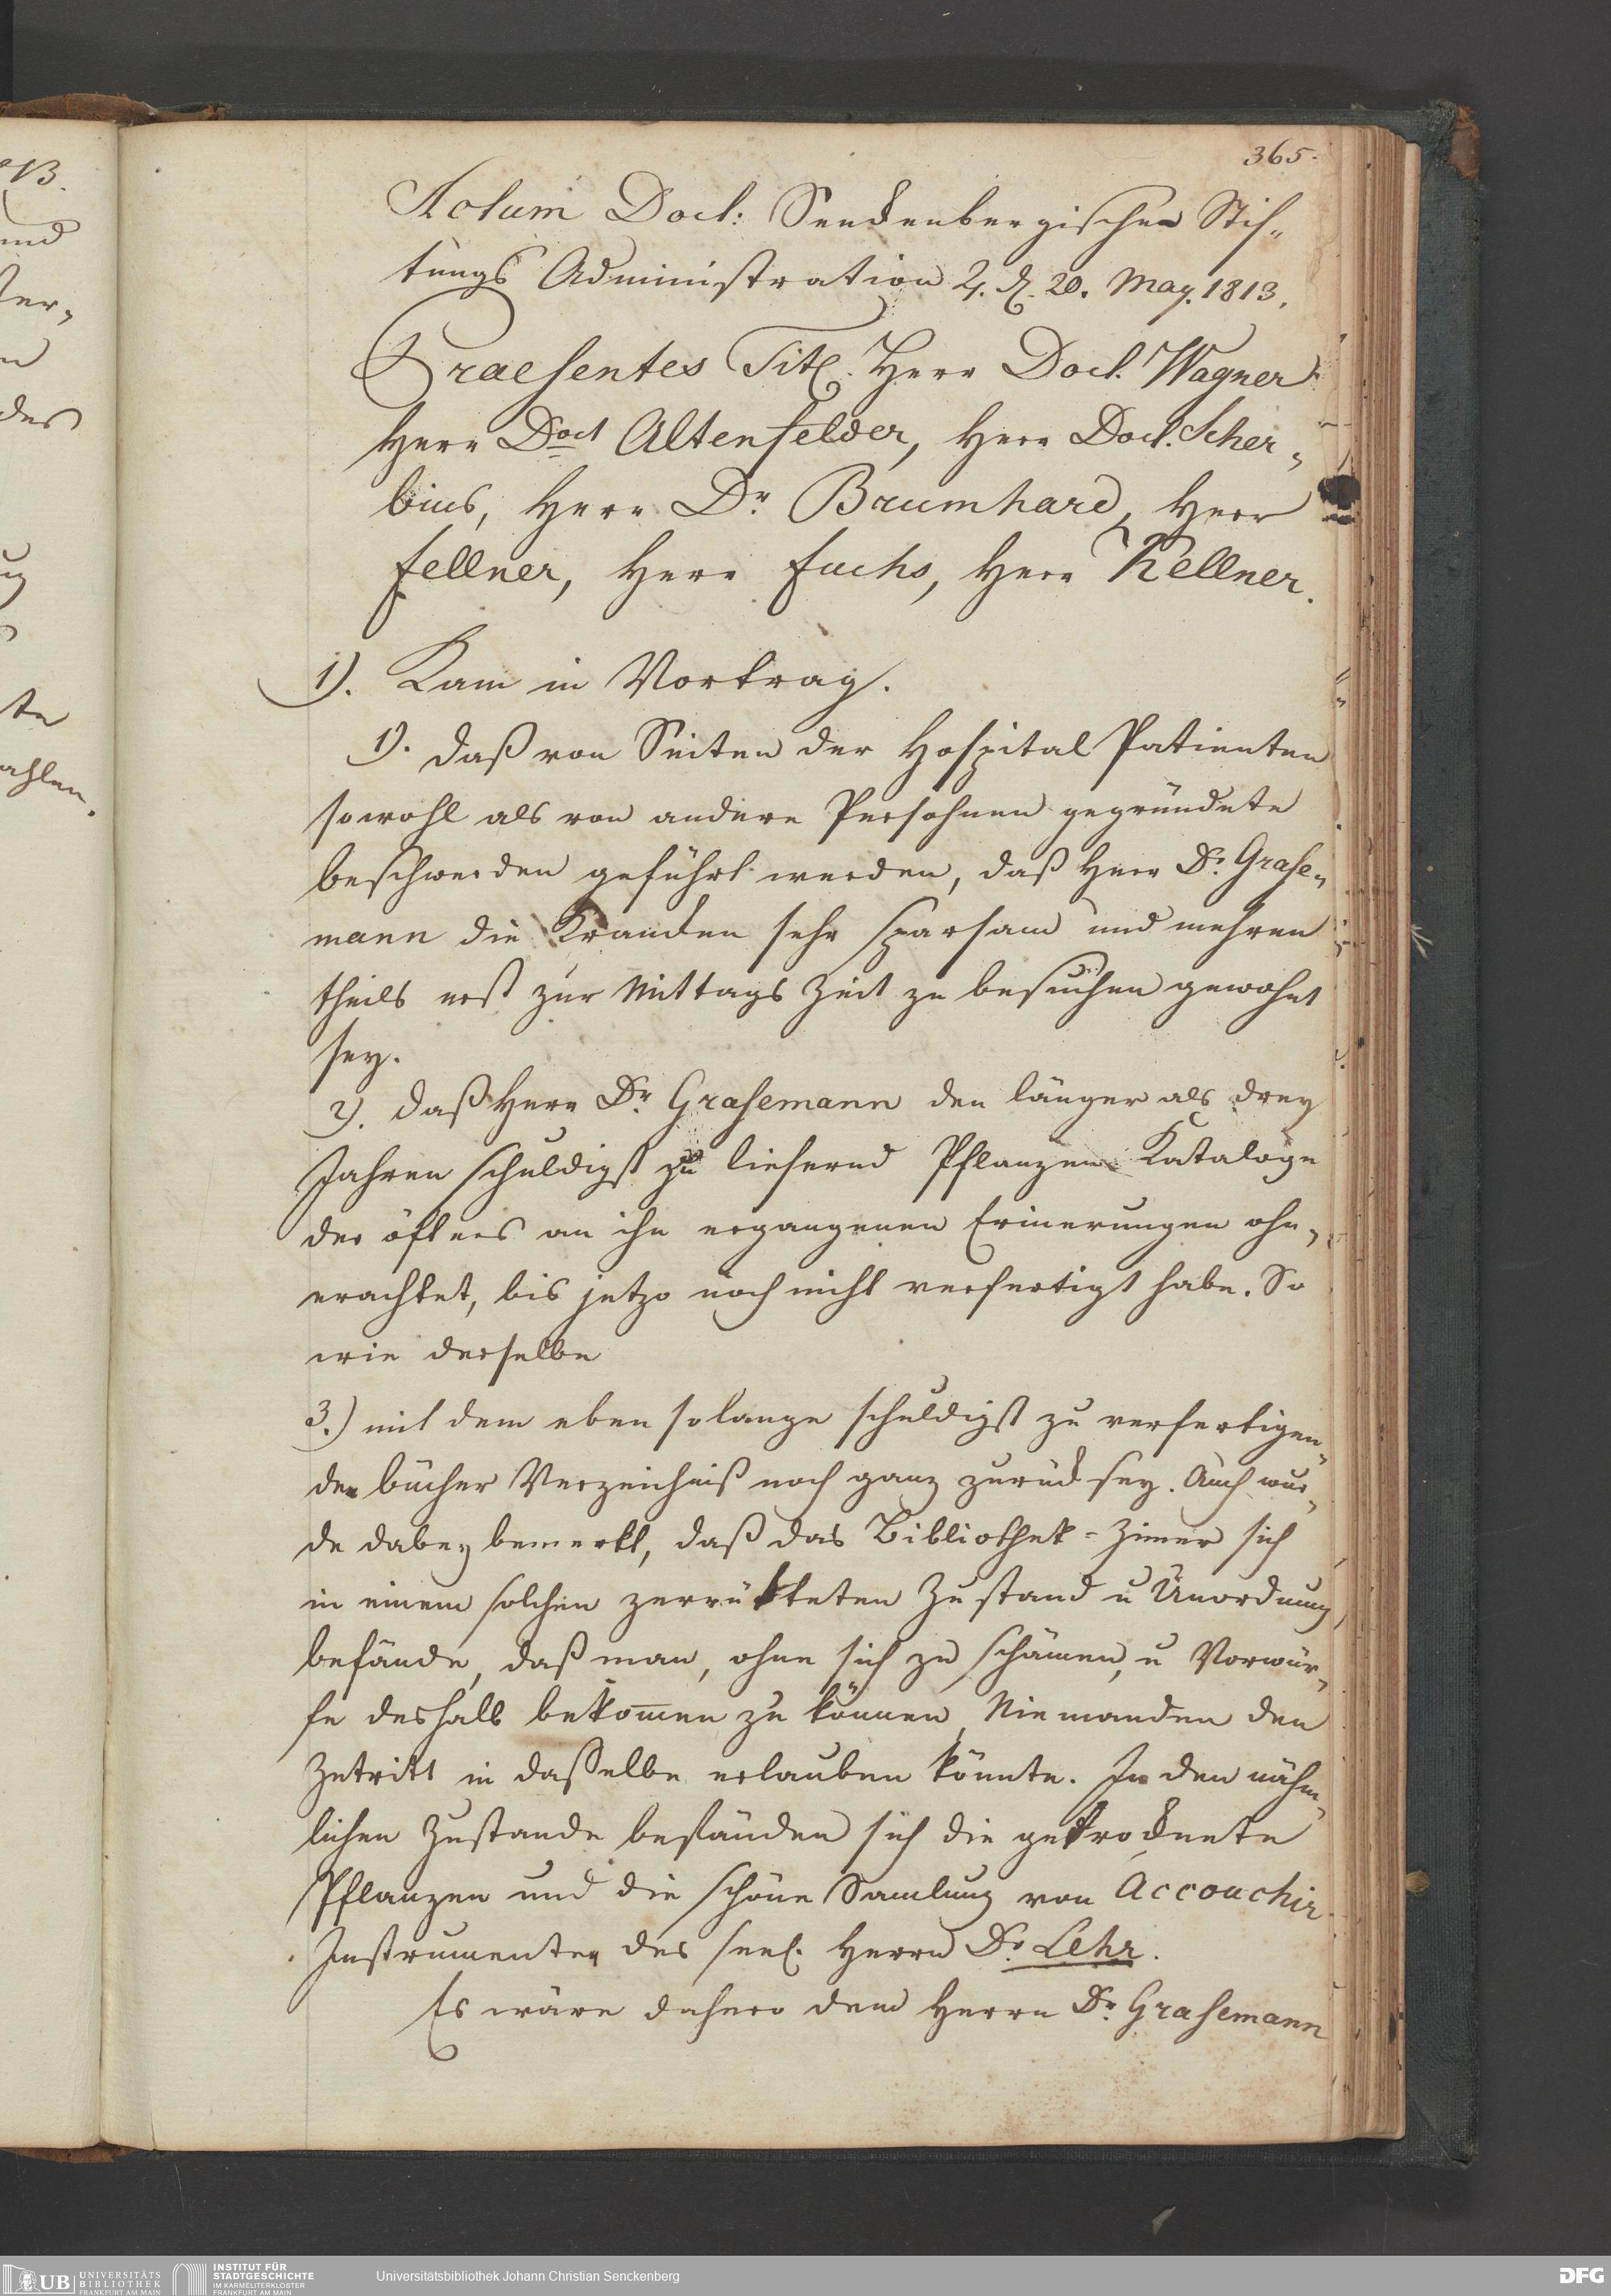 365.
Actum Doct: Senckenbergischen Stif-
tungs Administration ♃. d. 20. May. 1813.
Praesentes Titl. Herr Doct. Wagner
Herr Doct Altenfelder, Herr Doct. Scher-
bius, Herr Dr. Brumhard, Herr
Fellner, Herr Fuchs, Herr Kellner.
1). Kam in Vortrag.
1). daß von Seiten der Hospital Patienten
sowohl als von andern Persohnen gegründete
beschwerden geführt werden, daß Herr Dr. Grase-
mann die Krancken sehr sparsam und mehren
theils erst zur Mittags Zeit zu besuchen gewohnt
sey.
2). daß Herr Dr. Grasemann den länger als drey
Jahren schuldigst zu liefernd Pflanzen Kataloge
der öfters an ihn ergangenen Erinerungen ohn-
erachtet, bis jetzo noch nicht verfertigt habe. So
wie derselbe
3.) mit dem eben so lange schuldigst zu verfertigen-
den bücher Verzeichniß noch ganz zurück sey. Auch wur-
de dabey bemerkt, daß das Bibliothek-Zimer sich
in einem solchen zerrütteten Zustand u Unordnung
befände, daß man, ohne sich zu schämen, u Vorwür-
fe deshalb bekommen zu können, Niemanden den
Zutritt in dasselbe erlauben könnte. In den nähm-
lichen Zustande befänden sich die getrocknete
Pflanzen und die schöne Samlung von Accouchir
Instrumenten des seel. Herrn Dr. Lehr.
Es wäre dahero dem Herrn Dr. Grasemann
UB UNIVERSITÄTS
BIBLIOTHEK
FRANKFURT AM MAIN
INSTITUT FÜR
STADTGESCHICHTE
IM KARMELITERKLOSTER
FRANKFURT AM MAIN
Universitätsbibliothek Johann Christian Senckenberg
DFG